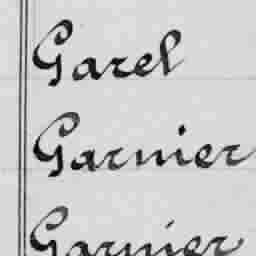 Garel
Garnier
Garnier